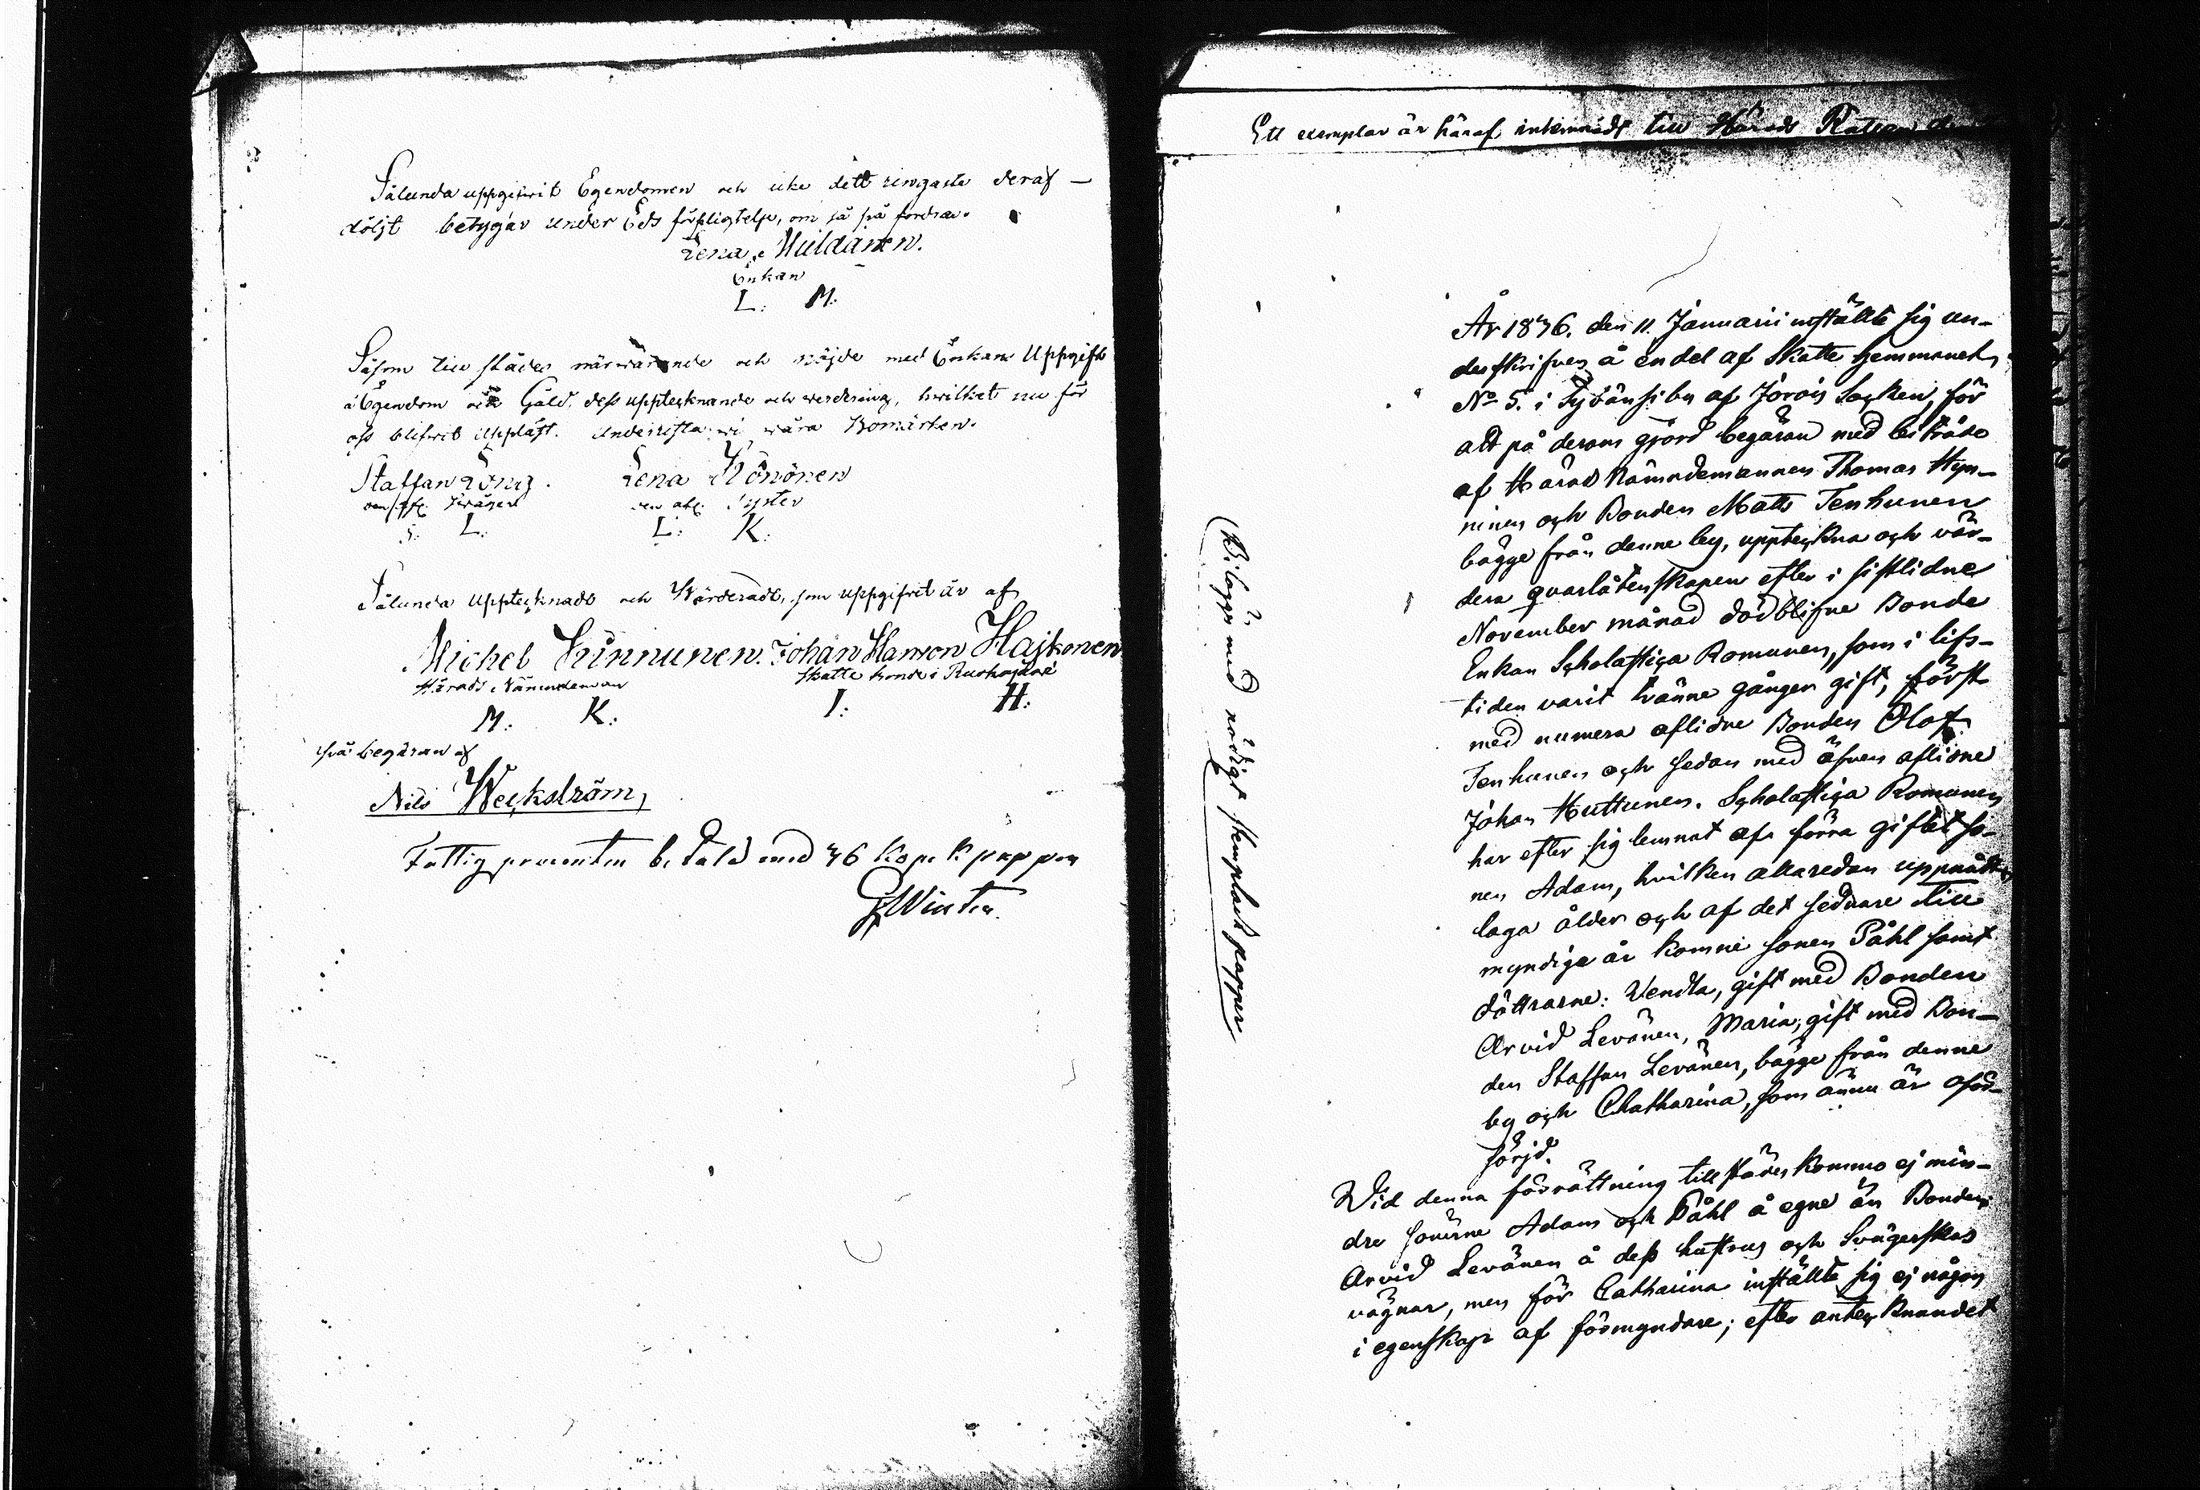 Sålunda uppgifwit Egendomen och icke dett ringaste deraf —
döljt betygar under Eds förpligtelse, om så på fordras.
Lena Muldainen.
Enkan
L: M:
Såsom till städes närwarande och nöjde med Enkans Uppgift
å Egendom och Gäld, dess upptecknande och werdering, hwilket nu för
oss blifwit uppläst. Underrista wi wåra Bomärken.
Staffan Löng.
Lena Könönen
den afl. Swåger
den afl. Syster
S: L:
L: K:
Sålunda upptecknadt och Wärderadt, som uppgifvet är af
Michel Kinnunen. Johan Hanson Hajkonen
Härads Nämndeman
Skatte bonde i
M: K:
I: H:
på begäran af
Nils Weckström,
Fattig procenten betald med 76 Kop. papper
Winter.
Ett exemplar är häraf inlemnadt till Härads Rätten
År 1876. den 11. Januarii instälte sig un-
derskrifven å en del af Skatte hemmanet
No 5. i af Jorois Socken, för
att på derom gjord begäran med biträde
af Härads Nämndemannen Thomas Hyn-
ninen och Bonden Matts Tenhunen
bägge från denne by, uppteckna och vär-
dera qvarlåtenskapen efter i sistlidne
November månad död blifne Bonde
Enkan Scholastica Romunen, som i lifs-
tiden varit tvänne gånger gift, först
med numera aflidne Bonden Olof
Tenhunen och sedan med äfven aflidne
Johan Huttunen. Scholastica Romunen
har efter sig lemnat af förra giftet so-
nen Adam, hvilken allaredan uppnått
laga ålder och af det sednare till
myndige år komne sonen Påhl samt
döttrarne: Vendla, gift med Bonden
Arvid Levänen, Maria, gift med Bon-
den Staffan Levänen, bägge från denne
by och Chatharina, som ännu är oför-
sörjd.
Wid denna förrättning till städes kommo ej min-
dre sönerne Adam och Påhl å egne än Bonden
Arvid Levänen å dess hustrus och Svägerskas
vägnar, men för Catharina instälte sig ej någon
i egenskap af förmyndare; efter antecknandet
(Bilägges med nödigt stempladt papper